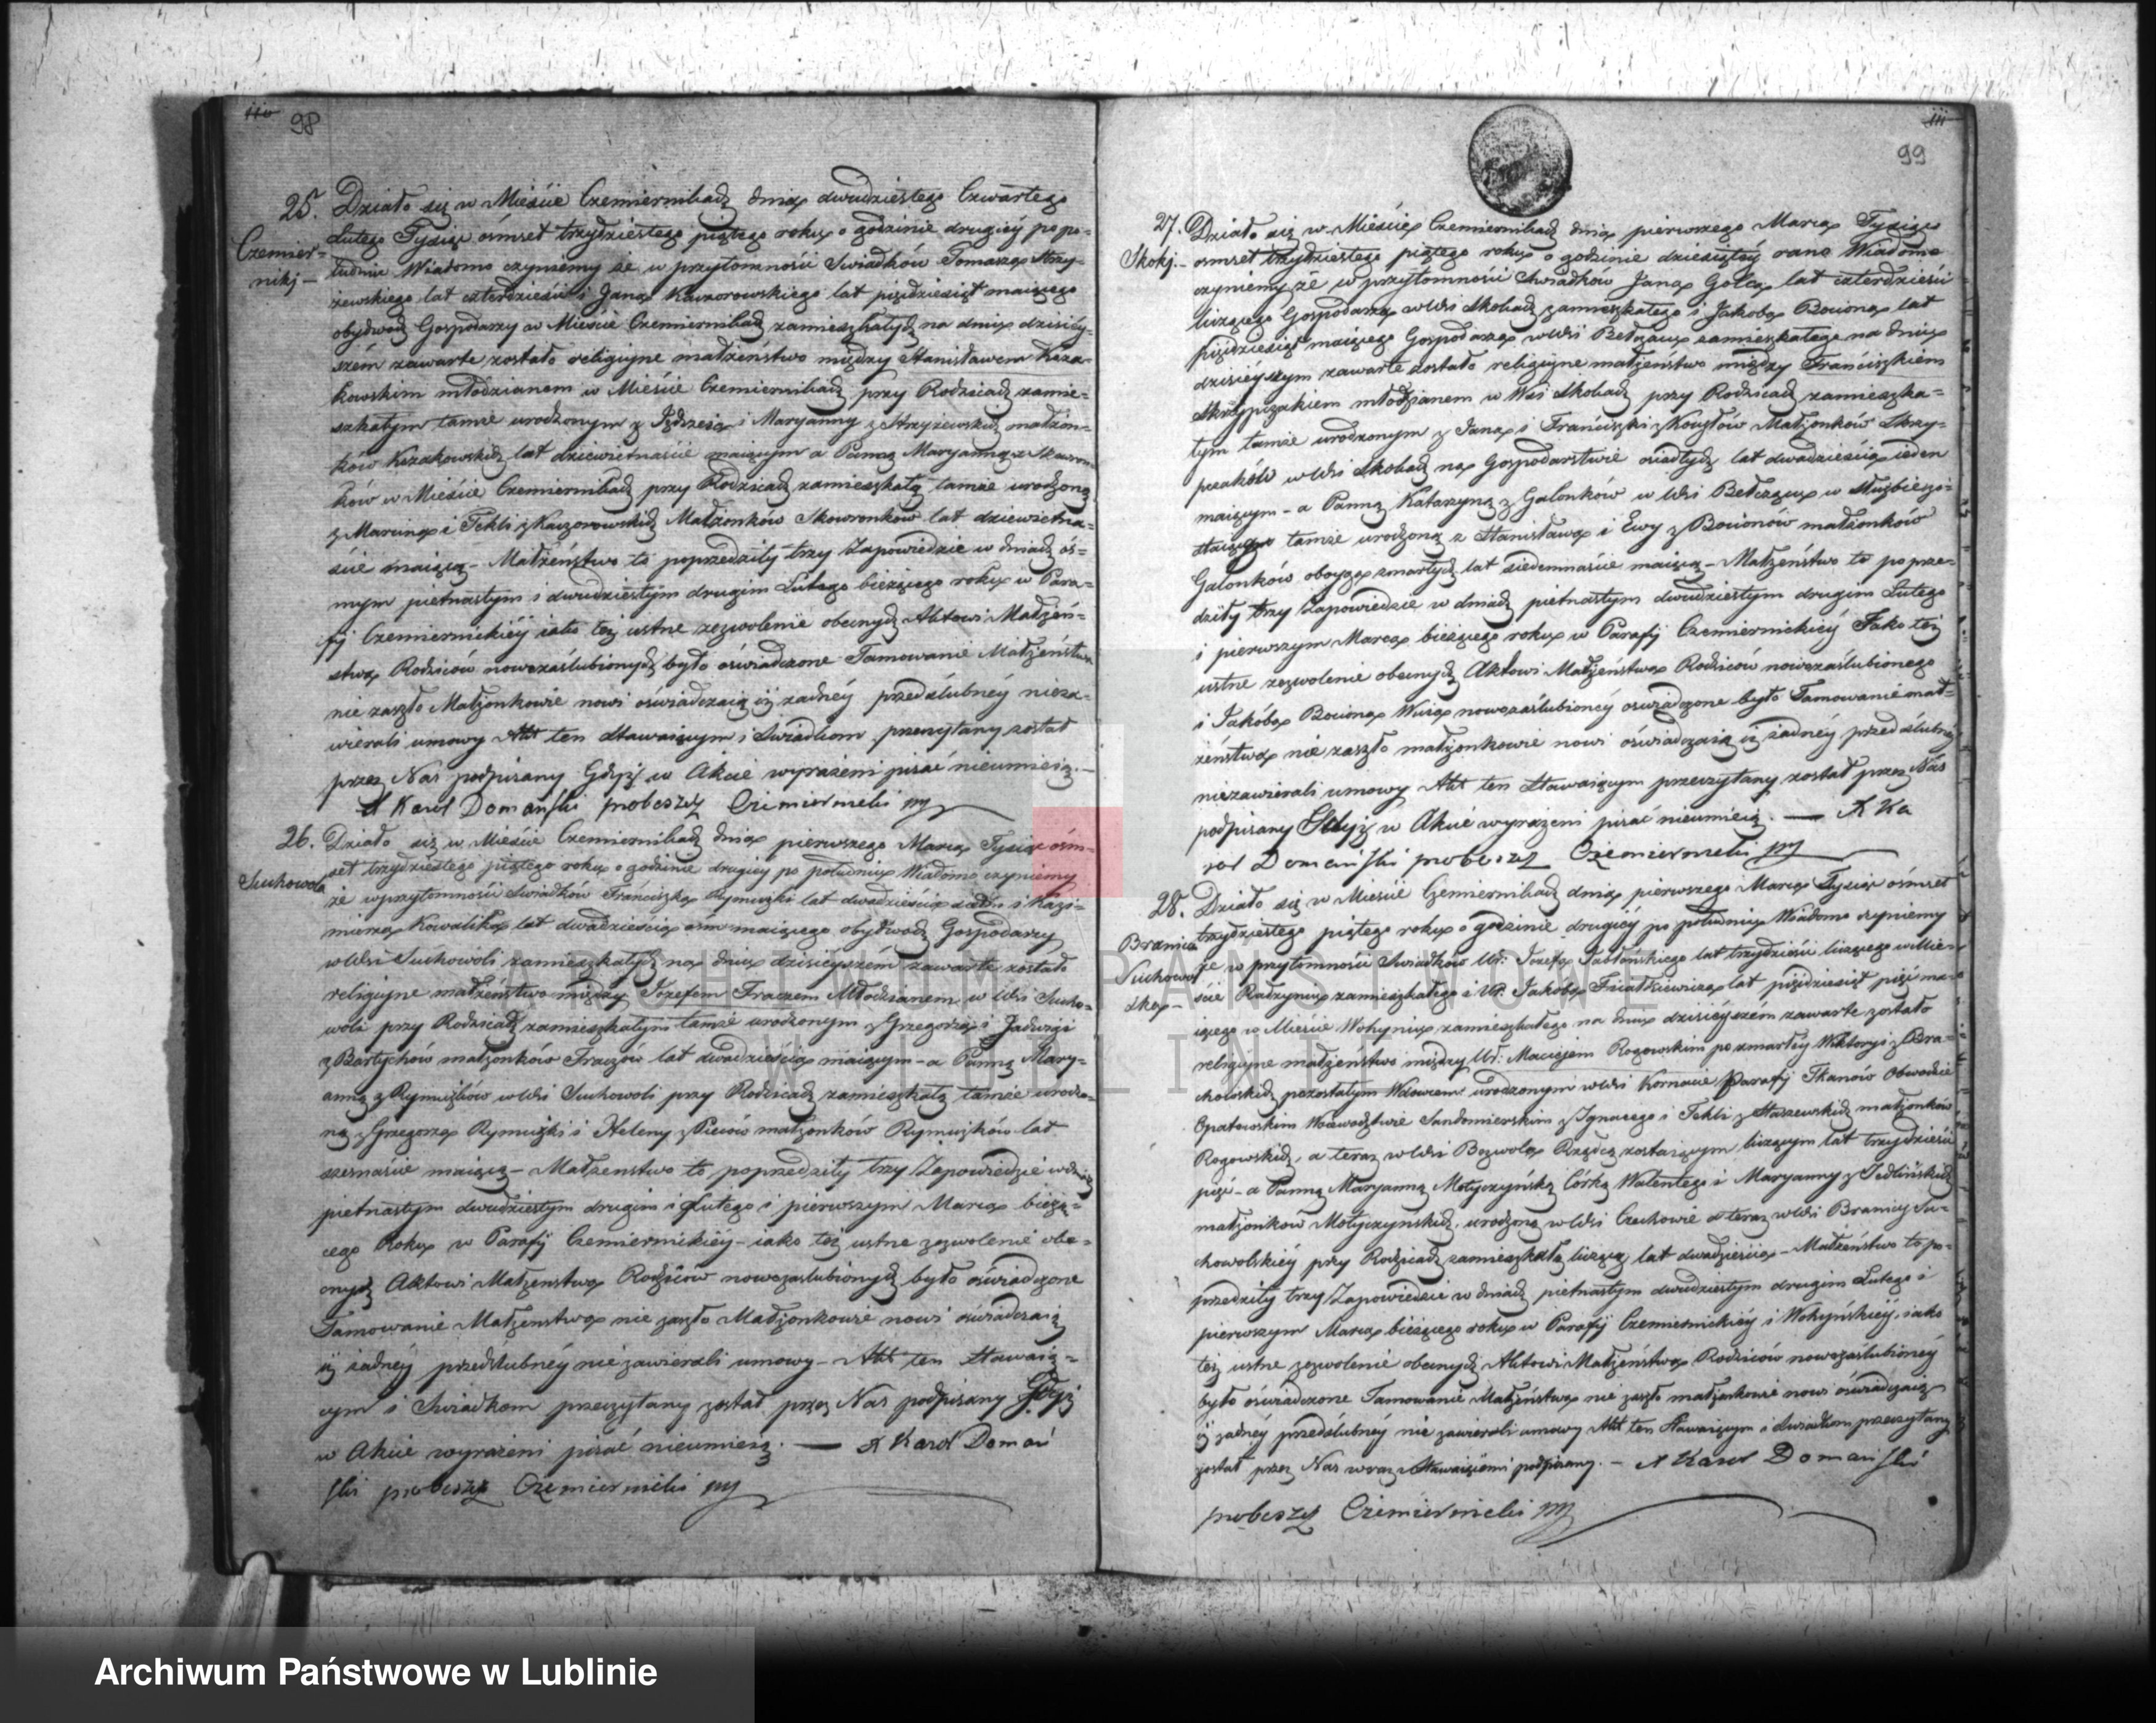 110 98
25. Działo się w Mieście Czemiernikach dnia dwudziestego Czwartego
Czemier-
niki —
Lutego Tysiąc ośmset trzydziestego piątego roku o godzinie drugiéy popo-
łudniu Wiadomo czyniemy że w przytomności Swiadków Tomasza Strzy-
żewskiego lat czterdzieści i Jana Kaczorowskiego lat pięćdziesiąt maiącego
obydwóch Gospodarzy w Mieście Czemiernikach zamieszkałych na dniu dzisiéy-
szém zawarte zostało religiyne małżeństwo między Stanisławem Koza-
kowskim młodzianem w Mieście Czemiernikach przy Rodzicach zamie-
szkałym tamże urodzonym z Jędrzeia i Maryanny z Strzyżewskich małżon-
ków Kozakowskich lat dziewietnaście maiącym a Panną Maryanną z Skowron-
ków w Mieście Czemiernikach przy Rodzicach zamieszkałą tamże urodzoną
z Marcina i Tekli z Kaczorowskich Małżonków Skowronków lat dziewietna-
ście maiącą – Małżeństwo to poprzedziły trzy Zapowiedzie w dniach ós-
mym pietnastym i dwudziestym drugim Lutego bieżącego roku w Para-
fij Czemiernickiéy iako też ustne zezwolenie obecnych Aktowi Małżeń-
stwa Rodziców nowozaślubionych było oświadczone Tamowanie Małżeństwa
nie zaszło Małżonkowie nowi oświadczaią iż żadnéy przedślubnéy nieza-
wierali umowy Akt ten Stawaiącym i Swiadkom przeczytany został
przez Nas podpisany Gdyż w Akcie wyrażeni pisać nieumieią. —
X Karol Domański proboszcz Czemiernicki
26. Działo się w Mieście Czemiernikach dnia pierwszego Marca Tysiąc ośm-
Suchowola
set trzydziestego piątego roku o godzinie drugiéy po południu Wiadomo czyniemy
że w przytomności Swiadków Franciszka lat dwadzieścia i Kazi-
mierza Kowalika lat dwadzieścia ośm maiącego obydwóch Gospodarzy
w Wsi Suchowoli zamieszkałych na dniu dzisiéyszém zawarte zostało
religiyne małżeństwo między Józefem Fraczem Młodzianem w Wsi Sucho-
woli przy Rodzicach zamieszkałym tamże urodzonym z Grzegorza i Jadwigi
z Bartychów małżonków Fraczów lat dwadzieścia maiącym – a Panną Mary-
anną z Rymuzków w Wsi Suchowoli przy Rodzicach zamieszkałą tamże urodzo-
ną z Grzegorza Rymuzki i Heleny z Pieców małżonków Rymuzków lat
szesnaście maiącą – Małzenstwo to poprzedziły trzy Zapowiedzie w dniach
pietnastym dwudziestym drugim Lutego i pierwszym Marca bieżą-
cego Roku w Parafij Czemiernickiéy – iako też ustne zezwolenie obe-
cnych Aktowi Małzenstwa Rodziców nowozaslubionych było oświadczone
Tamowanie Małzenstwa nie zaszło Małżonkowie nowi oświadczaią
iż żadnéy przedślubnéy nie zawierali umowy – Akt ten Stawaią-
cym i Swiadkom przeczytany został przez Nas podpisany Gdyż
w Akcie wyrażeni pisać nieumieią. — X Karol Domań
ski proboszcz Czemiernicki
111
99
27. Działo się w Mieście Czemiernikach dnia pierwszego Marca Tysiąc
Skoki. –
ośmset trzydziestego piątego roku o godzinie dziesiątéy rano Wiadomo
czyniemy że w przytomności Swiadków Jana Golca lat czterdzieści
liczącego Gospodarza w Wsi Skokach zamieszkałego i Jakoba Bociona lat
pięćdziesiąt maiącego Gospodarza w Wsi Bełczącu zamieszkałego na dniu
dzisiéyszym zawarte zostało religiyne małżeństwo między Franciszkiem
Skrzypczakiem młodzianem w Wsi Skokach przy Rodzicach zamieszka-
łym tamże urodzonym z Jana i Franciszki z Kozłów Małżonków Skrzy-
pczaków w Wsi Skokach na Gospodarstwie osiadłych lat dwadzieścia ieden
maiącym – a Panną Katarzyną z Galonków w Wsi Bełczącu w Służbie zo-
staiącą tamże urodzoną z Stanisława i Ewy z Bocionów małżonków
Galonków oboyga zmarłych lat siedemnaście maiącą – Małżeństwo to poprze-
dziły trzy Zapowiedzie w dniach pietnastym dwudziestym drugim Lutego
i pierwszym Marca bieżącego roku w Parafij Czemiernickiéy Jako też
ustne zezwolenie obecnych Aktowi Małżeństwa Rodziców nowozaślubionego
i Jakóba Bociona Wuia nowozaślubionéy oswiadczone było Tamowanie mał-
żeństwa nie zaszło małżonkowie nowi oświadczaią iż żadnéy przedślubnéy
niezawierali umowy Akt ten Stawaiącym przeczytany został przez Nas
podpisany Gdyż w Akcie wyrażeni pisać nieumieią. — X Ka
rol Domański proboszcz Czemiernicki
28. Działo się w Mieście Czemiernikach dnia pierwszego Marca Tysiąc ośmset
Branica
Suchowol
ska –
trzydziestego piątego roku o godzinie drugiéy po południu Wiadomo czyniemy
że w przytomności Swiadków Ur: Józefa Jabłońskiego lat trzydzieści liczącego w Mie-
ście Radzyniu zamieszkałego i Ur. Jakoba lat pięćdziesiąt pięć ma-
iącego w Mieście Wohyniu zamieszkałego na dniu dzisiéyszém zawarte zostało
religiyne małżeństwo między Ur: Maciejem Rogowskim po zmarłéy Wiktoryi z Bra-
chowskich pozostałym Wdowcem urodzonym w Wsi Kornacie Parafij Tkanów Obwodzie
Opatowskim Woiewództwie Sandomierskim z Ignacego i Tekli z Staszewskich małżonków
Rogowskich, a teraz w Wsi Bezwola Rządcą zostaiącym liczącym lat trzydzieści
pięć – a Panną Maryanną Motyczyńską Córką Walentego i Maryanny z Jedlińskich
małżonków Motyczyńskich, urodzoną w Wsi Czechowie a teraz w Wsi Branicy Su-
chowolskiéy przy Rodzicach zamieszkałą liczącą lat dwadzieścia – Małżeństwo to po-
przedziły trzy Zapowiedzie w dniach pietnastym dwudziestym drugim Lutego i
pierwszym Marca bieżącego roku w Parafij Czemiernickiéy i Wohyńskiéy, iako
też ustne zezwolenie obecnych Aktowi Małżeństwa Rodziców nowozaślubionéy
było oświadczone Tamowanie Małżeństwa nie zaszło małżonkowie nowi oświadczaią
iż żadnéy przedślubnéy nie zawierali umowy Akt ten Stawaiącym i Swiadkom przeczytany
został przez Nas wraz z Stawaiącémi podpisany. – X Karol Domański
proboszcz Czemiernicki
ARCHIWUM PAŃSTWOWE
W LUBLINIE
Archiwum Państwowe w Lublinie